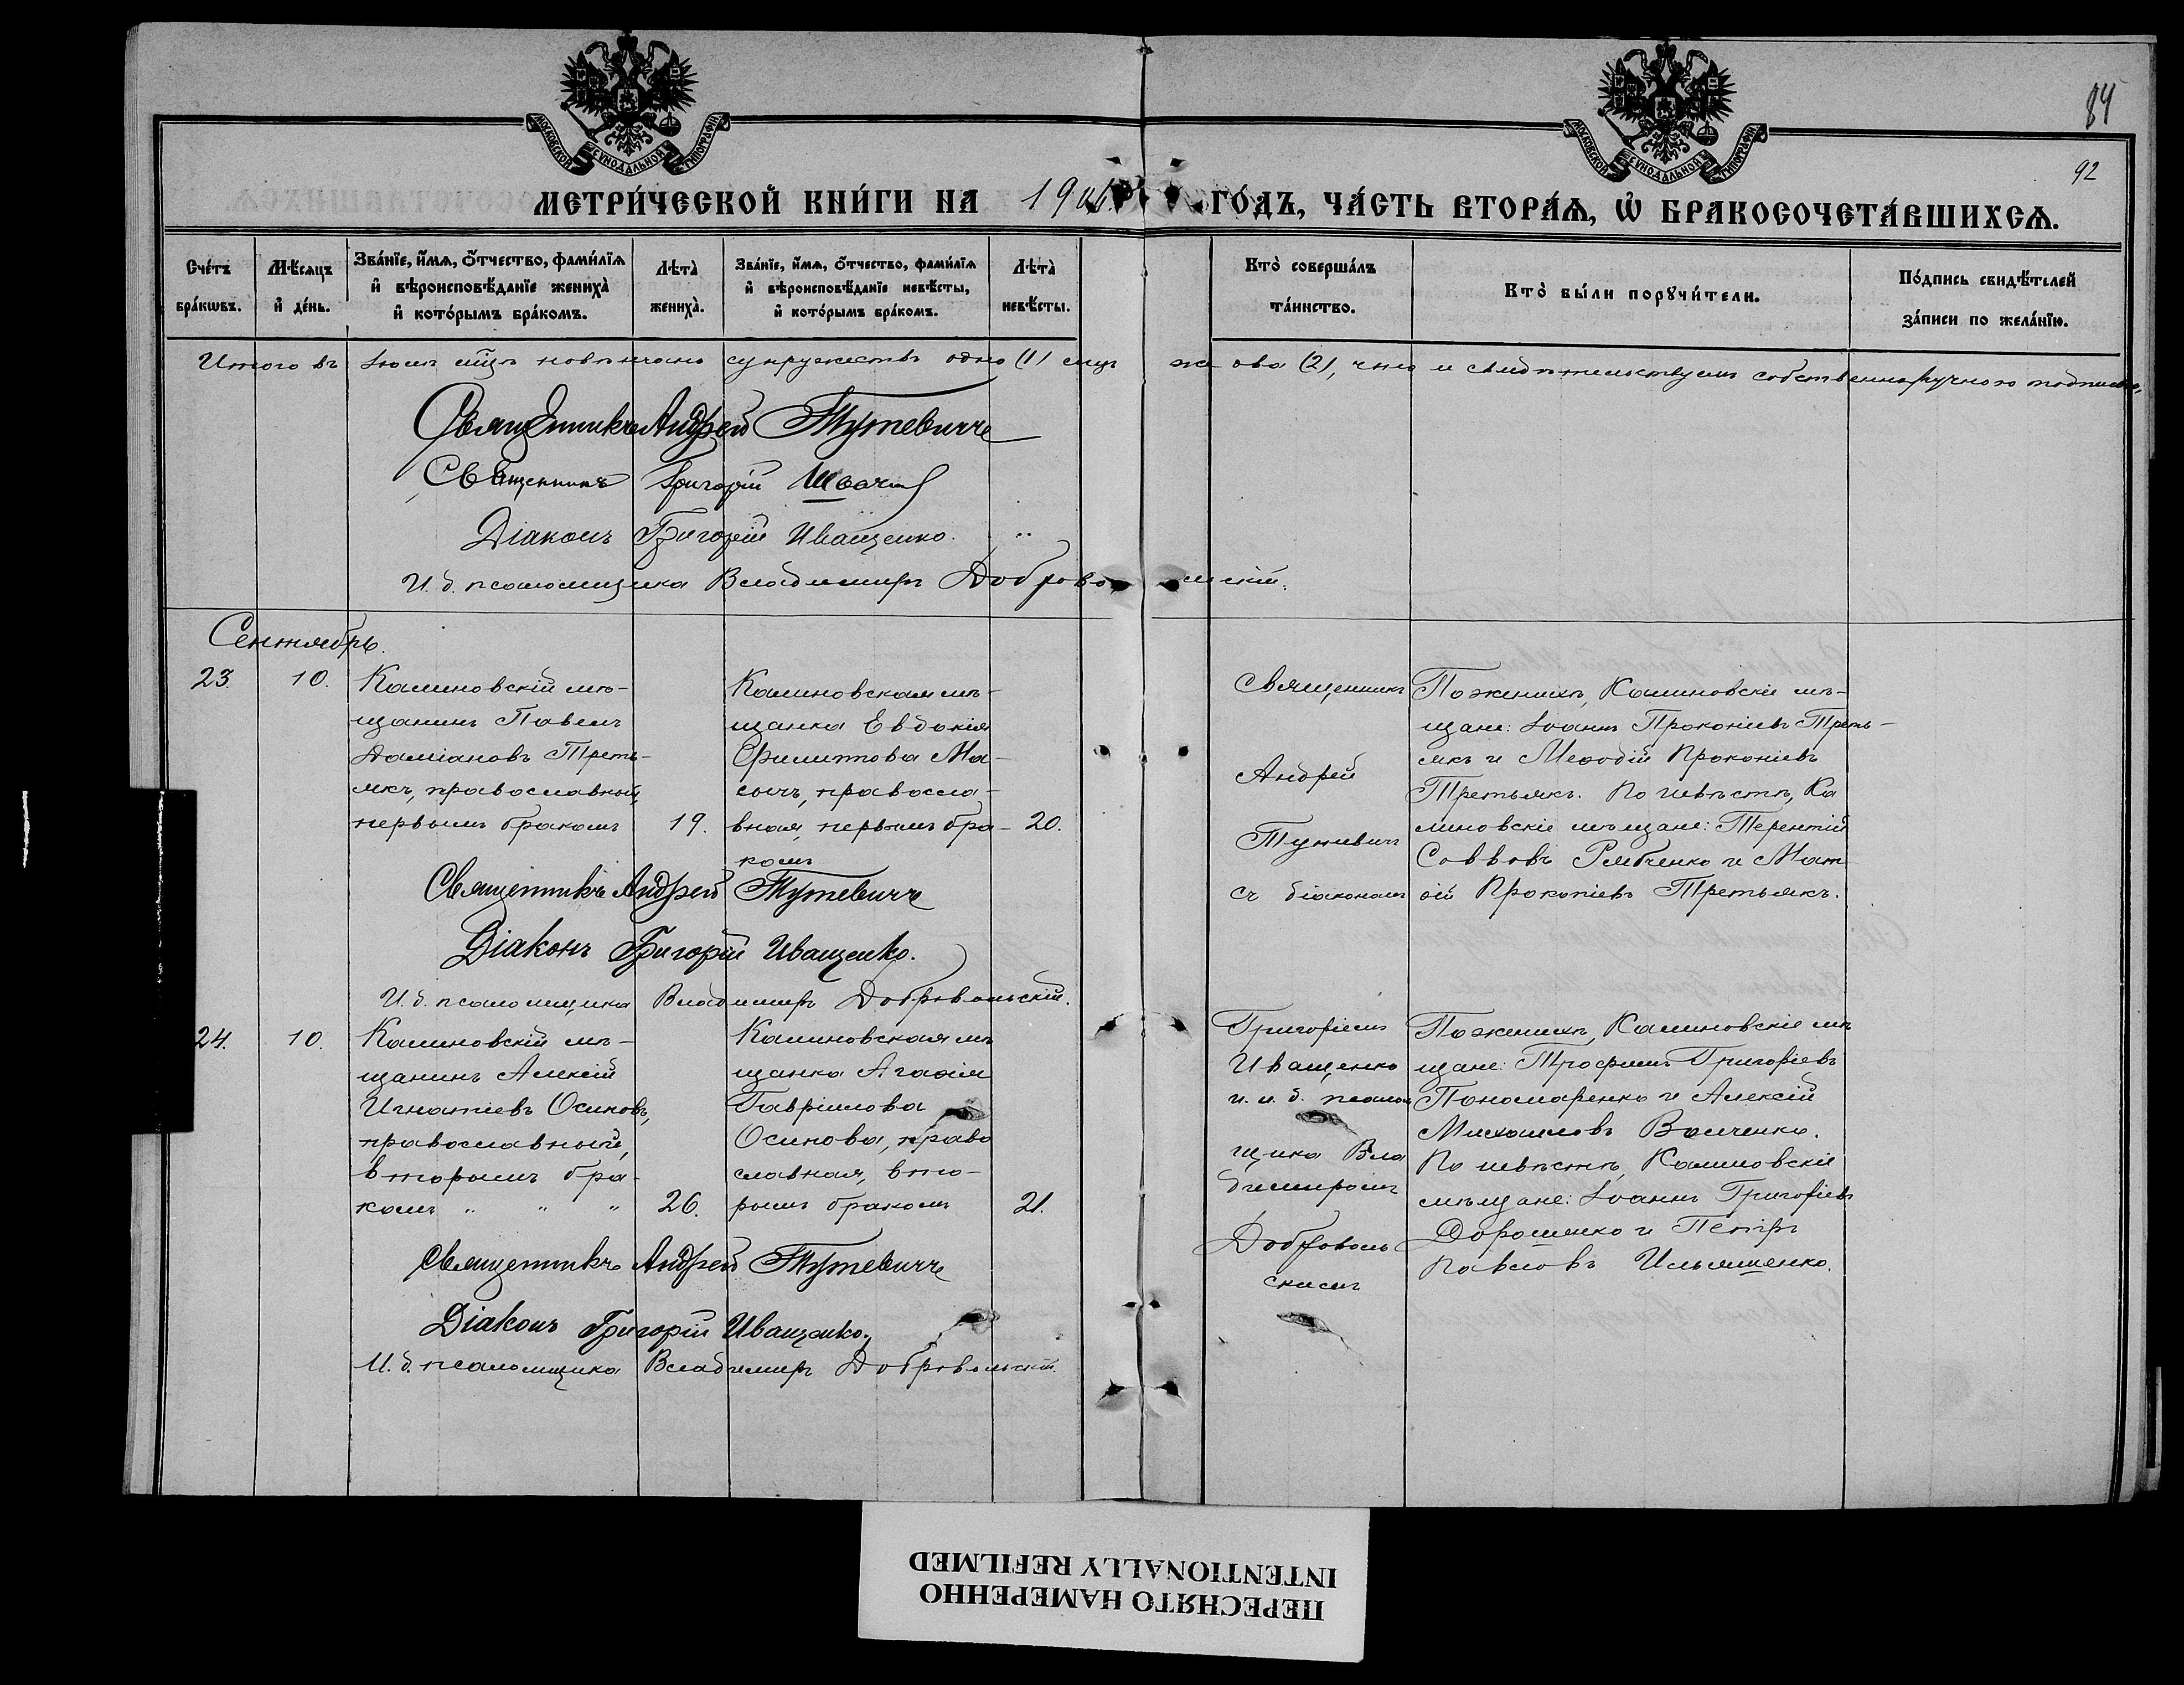 МОСКОВСКОЙ СѴНОДАЛЬНОЙ ТИПОГРАФІИ
МОСКОВСКОЙ СѴНОДАЛЬНОЙ ТИПОГРАФІИ
84
92
МЕТРИ́ЧЕСКОЙ КНИ́ГИ НА 190 ГО́ДЪ, ЧА́СТЬ ВТОРА́Ѧ, Ѡ БРАКОСОЧЕТА́ВШИХСѦ.
Сче́тъ бра́кѡвъ.
Мѣ́сяцъ и де́нь.
Зва́нїе, и́мѧ, ѻ́тчество, фами́лїѧ и вѣроисповѣ́данїе жениха̀ и кото́рымъ бра́комъ.
Лѣта̀ жениха̀.
Зва́нїе, и́мѧ, ѻ́тчество, фами́лїѧ и вѣроисповѣ́данїе невѣ́сты, и кото́рымъ бра́комъ.
Лѣта̀ невѣ́сты.
Кто̀ соверша́лъ та́инство.
Кто̀ бы́ли порꙋчи́тели.
По́дпись свидѣ́телей за́писи по жела́нїю.
Итого въ мѣсяцѣ повѣнчано супружествъ одно (1) лицъ же два (2), что и свидѣтельствуемъ собственноручною подписью,
Священникъ Андрей Тутевичъ
Священникъ Григорій
Діаконъ Григорій Иващенко.
И. д. псаломщика Владимиръ Добровольскій.
Сентябрь.
23.
10.
Калиновскій мѣ-
щанинъ Павелъ
Даміановъ Треть-
якъ, православный,
первымъ бракомъ
19.
Калиновская мѣ-
щанка Евдокія
Филиппова Ма-
сочъ, правосла-
вная, первымъ бра-
комъ
20.
Священникъ
Андрей
Тутевичъ
съ діакономъ
По женихѣ, Калиновскіе мѣ-
щане: Іоаннъ Прокопіевъ Треть-
якъ и Меѳодій Прокопіевъ
Третьякъ. По невѣстѣ, Ка
линовскіе мѣщане: Терентій
Саввовъ Рябченко и Мат
ѳій Прокопіевъ Третьякъ.
Священникъ Андрей Тутевичъ
Діаконъ Григорій Иващенко.
И. д. псаломщика Владимиръ Добровольскій.
24.
10.
Калиновскій мѣ-
щанинъ Алексій
Игнатіевъ Осиповъ,
православный,
вторымъ бра-
комъ " " "
26.
Калиновская мѣ
щанка Агаѳія
Гавріилова
Осипова, право
славная, вто-
рымъ бракомъ
21.
Григоріемъ
Иващенко
и и. д. псалом
щика Вла
димиромъ
Доброволь
скимъ
По женихѣ, Калиновскіе мѣ
щане: Трофимъ Григоріевъ
Пономаренко и Алексій
Михаиловъ Волченко.
По невѣстѣ, Калиновскіе
мѣщане: Іоаннъ Григоріевъ
Дорошенко и Петръ
Павловъ Ильяшенко.
Священникъ Андрей Тутевичъ
Діаконъ Григорій Иващенко.
И. д. псаломщика Владимиръ Добровольскій.
ПЕРЕСНЯТО НАМЕРЕННО
INTENTIONALLY REFILMED